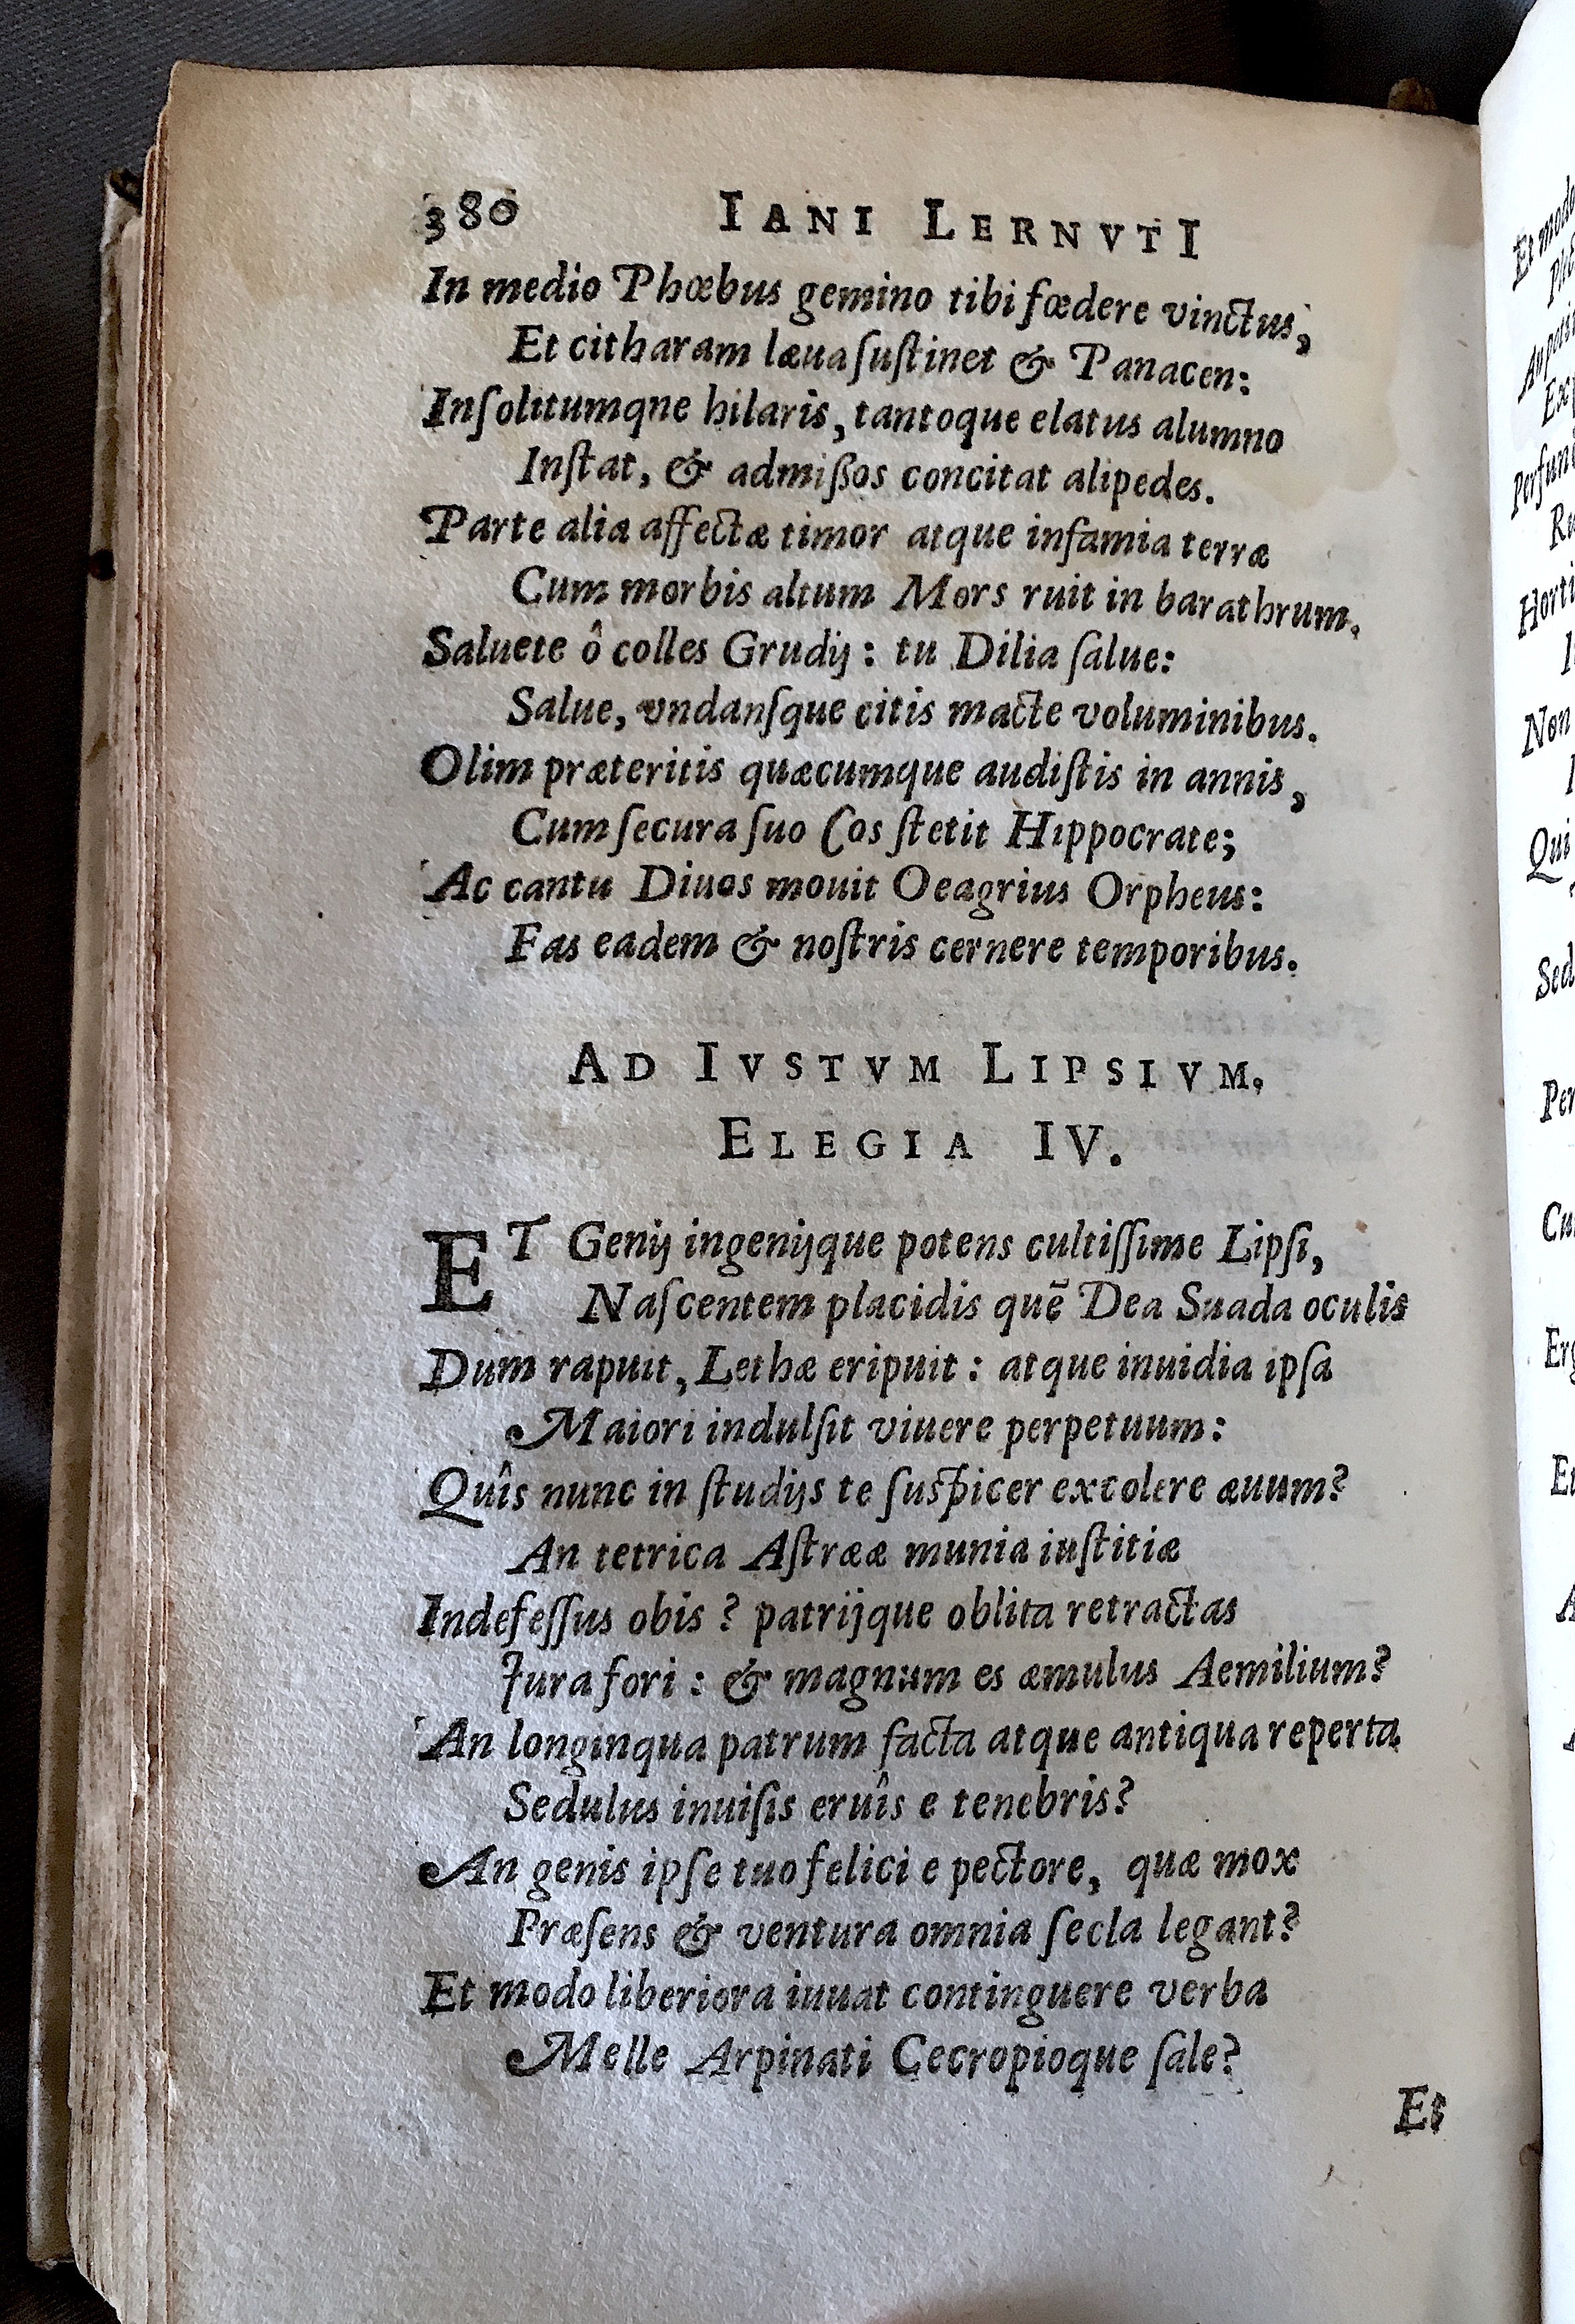 380 IANI LERNVTI
In medio Phœbus gemino tibi fœdere vinctus,
Et citharam læua ſuſtinet & Panacen:
Inſolitumqne hilaris, tantoque elatus alumno
Inſtat, & admißos concitat alipedes.
Parte alia affectæ timor atque infamia terræ
Cum morbis altum Mors ruit in barathrum.
Saluete ô colles Grudij: tu Dilia ſalue:
Salue, vndanſque citis macte voluminibus.
Olim præteritis quæcumque audiſtis in annis,
Cum ſecura ſuo Cos ſtetit Hippocrate;
Ac cantu Diuos mouit Oeagrius Orpheus:
Fas eadem & noſtris cernere temporibus.
AD IVSTVM LIPSIVM,
ELEGIA IV.
ET Genij ingenijque potens cultiſſime Lipſi,
Naſcentem placidis quē Dea Suada oculis
Dum rapuit, Lethæ eripuit: atque inuidia ipſa
Maiori indulſit viuere perpetuum:
Quîs nunc in ſtudijs te ſuſpicer excolere æuum?
An tetrica Aſtrææ munia iuſtitiæ
Indefeſſus obis? patrijque oblita retractas
Jura fori: & magnum es æmulus Aemilium?
An longinqua patrum facta atque antiqua reperta
Sedulus inuiſis eruîs e tenebris?
An genis ipſe tuo felici e pectore, quæ mox
Præſens & ventura omnia ſecla legant?
Et modo liberiora iuuat continguere verba
Melle Arpinati Cecropioque ſale?
Et